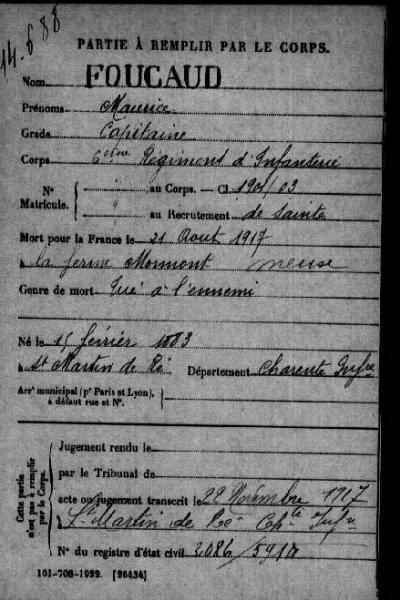 14.688
PARTIE À REMPLIR PAR LE CORPS.
Nom FOUCAUD
Prénoms Maurice
Grade Capitaine
Corps 6ème Régiment d'Infanterie
N° Matricule. " au Corps. — Cl. 1901/03
" au Recrutement de Sainte
Mort pour la France le 21 Aout 1917
à la ferme Mormont meuse
Genre de mort Tué à l'ennemi
Né le 15 février 1883
à St Martin de Ré Département Charente Infre
Arrt municipal (pr Paris et Lyon),
à défaut rue et N°.
Cette partie n'est pas à remplir par le Corps.
Jugement rendu le
par le Tribunal de
acte ou jugement transcrit le 22 Novembre 1917
à St Martin de Ré Chte Infre
N° du registre d'état civil 2086/
101-708-1922. [26434]